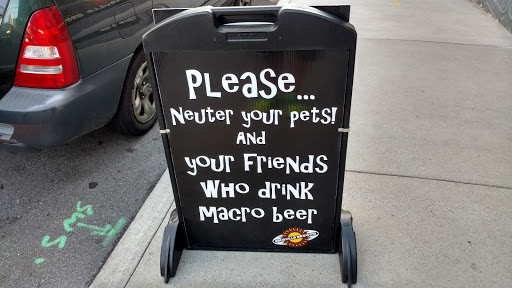 Please...
Neuter your pets!
And
your Friends
Who drink
Macro beer